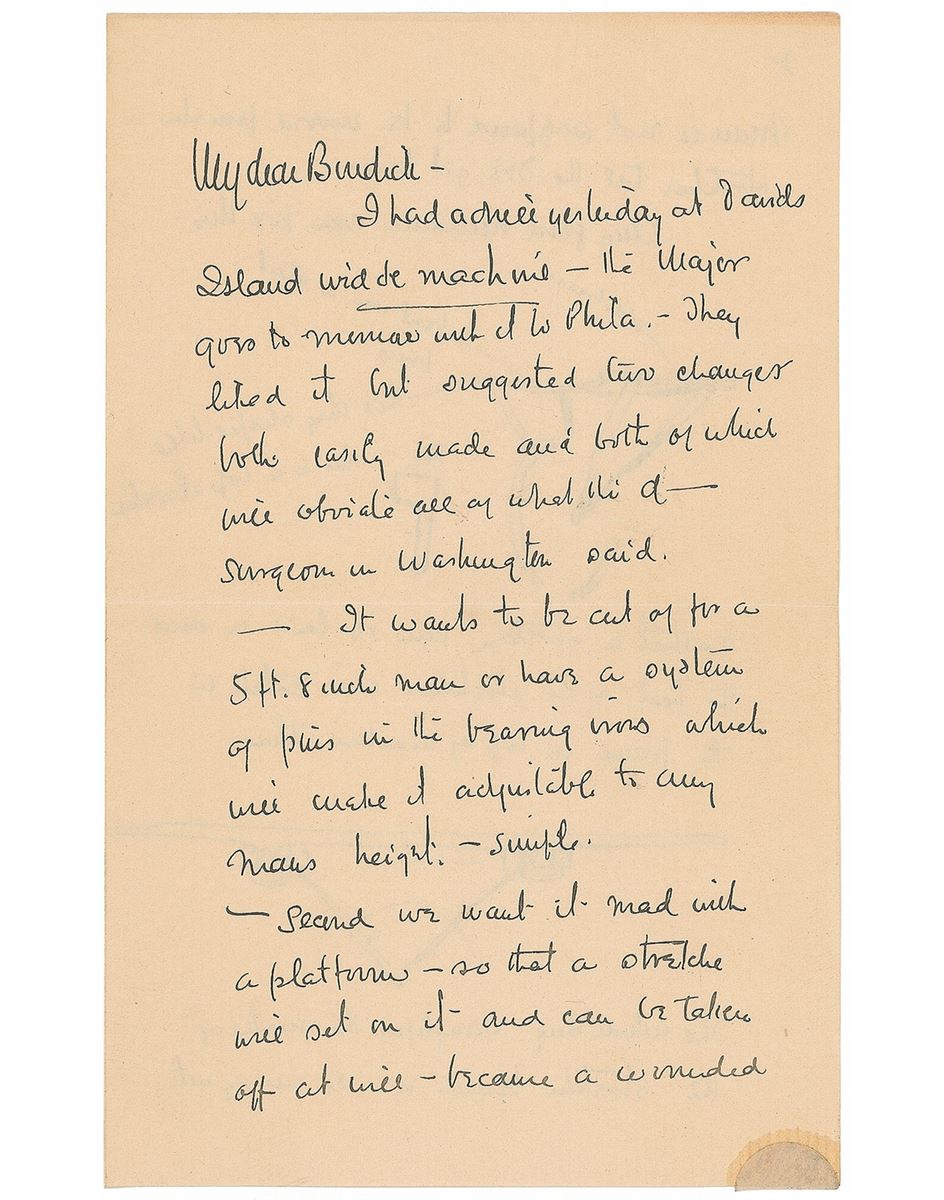 My dear Burdick –
I had a drill yesterday at Davids
Island with de machine – the Major
goes to with it to Phila. – They
liked it but suggested two changes
both easily made and both of which
will obviate all of what the d—
surgeon in Washington said.
— It wants to be cut of for a
5 ft. 8 inch man or have a system
of pins in the bearing irons which
will make it adjustable to any
mans height. – Simple.
– Second we want it mad with
a platform – so that a stretche
will set on it and can be taken
off at will – because a wounded